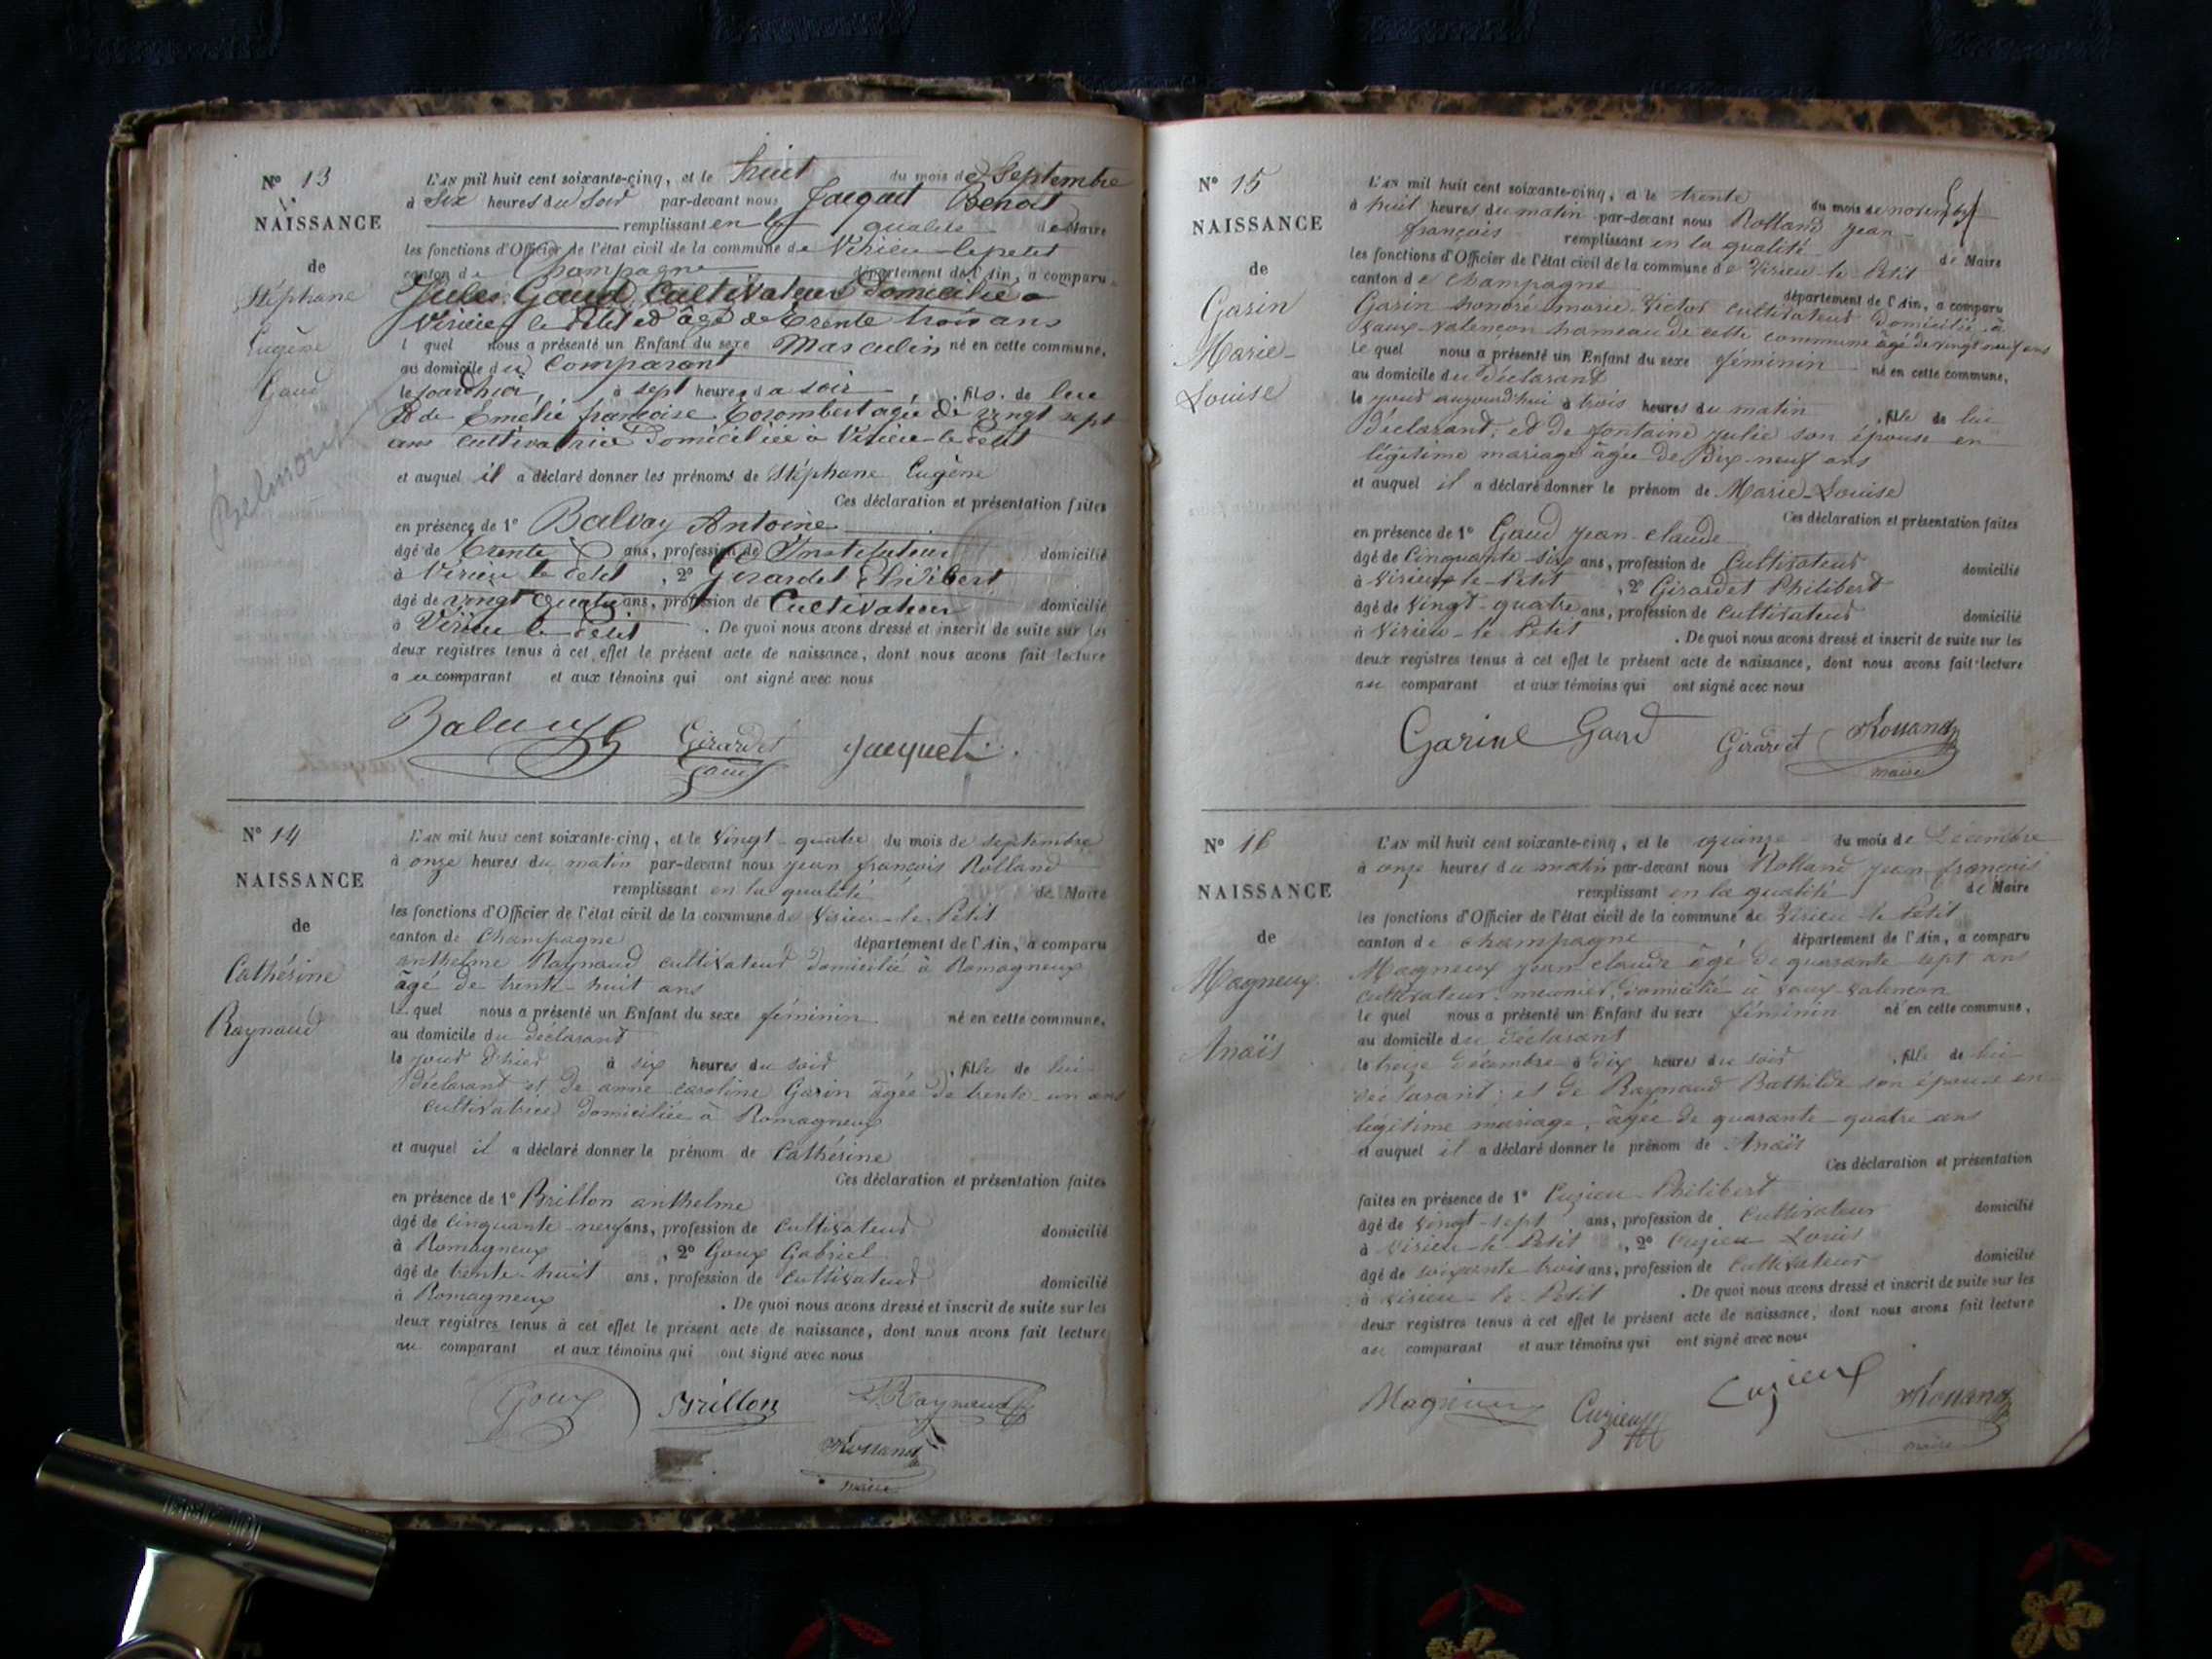 Nº 13
NAISSANCE
de
Stéphane
Eugène
Gaud
Belmont
L'AN mil huit cent soixante-cinq, et le huit du mois de Septembre
à Six heures du Soir par-devant nous Jacquet Benoit
remplissant en la qualité de Maire
les fonctions d'Officier de l'état civil de la commune de Virieu-le petit
canton de Champagne département de l'Ain, a comparu
Jules Gaud, Cultivateur Domicilié a
Virieu le Petit et âgé de trente trois ans
lequel nous a présenté un Enfant du sexe Masculin né en cette commune,
au domicile du Comparant
le jourdhui, à sept heures du soir, fils de lui
Et de Emelie françoise agée de vingt sept
ans cultivatrice Domiciliée à Virieu le Petit
et auquel il a déclaré donner les prénoms de Stéphane Eugène
Ces déclaration et présentation faites
en présence de 1º Balvay Antoine
âgé de trente ans, profession de Instituteur domicilié
à Virieu le Petit, 2º Girardet Philibert
âgé de vingt quatre ans, profession de Cultivateur domicilié
à Virieu le Petit. De quoi nous avons dressé et inscrit de suite sur les
deux registres tenus à cet effet le présent acte de naissance, dont nous avons fait lecture
au comparant et aux témoins qui ont signé avec nous
Balvay Girardet Jacquet
Gaud
Nº 14
NAISSANCE
de
Cathérine
Raynaud
L'AN mil huit cent soixante-cinq, et le Vingt-quatre du mois de septembre
à onze heures du matin par-devant nous jean françois Rolland
remplissant en la qualité de Maire
les fonctions d'Officier de l'état civil de la commune de Virieu-le-Petit
canton de Champagne département de l'Ain, a comparu
anthelme Raynaud cultivateur domicilié à Romagneux
âgé de trente-huit ans
lequel nous a présenté un Enfant du sexe féminin né en cette commune,
au domicile du déclarant
le jour d'hier à six heures du soir, fille de lui
déclarant et de anne caroline Garin âgée de trente-un ans
cultivatrice domiciliée à Romagneux
et auquel il a déclaré donner le prénom de Cathérine
Ces déclaration et présentation faites
en présence de 1º Brillon anthelme
âgé de cinquante-neuf ans, profession de cultivateur domicilié
à Romagneux, 2º Goux Gabriel
âgé de trente-huit ans, profession de cultivateur domicilié
à Romagneux. De quoi nous avons dressé et inscrit de suite sur les
deux registres tenus à cet effet le présent acte de naissance, dont nous avons fait lecture
au comparant et aux témoins qui ont signé avec nous
Goux Brillon Raynaud
Rolland
maire
Nº 15
NAISSANCE
de
Garin
Marie-
Louise
L'AN mil huit cent soixante-cinq, et le trente du mois de novembre
à huit heures du matin par-devant nous Rolland jean-
françois remplissant en la qualité de Maire
les fonctions d'Officier de l'état civil de la commune de Virieu-le-Petit
canton de Champagne département de l'Ain, a comparu
Garin honoré-marie-Victor cultivateur domicilié à
Vaux-Valençon hameau de cette commune âgé de vingt neuf ans
lequel nous a présenté un Enfant du sexe féminin né en cette commune,
au domicile du déclarant
le jour aujourd'hui à trois heures du matin, fille de lui
déclarant, et de fontaine julie son épouse en
légitime mariage âgée de Dix-neuf ans
et auquel il a déclaré donner le prénom de Marie-Louise
Ces déclaration et présentation faites
en présence de 1º Gaud jean-claude
âgé de cinquante-six ans, profession de cultivateur domicilié
à Virieu-le-Petit, 2º Girardet Philibert
âgé de vingt-quatre ans, profession de cultivateur domicilié
à Virieu-le Petit. De quoi nous avons dressé et inscrit de suite sur les
deux registres tenus à cet effet le présent acte de naissance, dont nous avons fait lecture
au comparant et aux témoins qui ont signé avec nous
Garin Gaud Girardet Rolland
maire
Nº 16
NAISSANCE
de
Magneux
Anaïs
L'AN mil huit cent soixante-cinq, et le quinze du mois de Décembre
à onze heures du matin par-devant nous Rolland jean-françois
remplissant en la qualité de Maire
les fonctions d'Officier de l'état civil de la commune de Virieu-le Petit
canton de champagne département de l'Ain, a comparu
Magneux jean claude âgé de quarante sept ans
cultivateur-meunier, domicilié à Vaux-Valençon
lequel nous a présenté un Enfant du sexe féminin né en cette commune,
au domicile du déclarant
le treize décembre à dix heures du soir, fille de lui
déclarant; et de Raynaud Bathilde son épouse en
légitime mariage, âgée de quarante-quatre ans
et auquel il a déclaré donner le prénom de Anaïs
Ces déclaration et présentation
faites en présence de 1º Cuzieu Philibert
âgé de vingt-sept ans, profession de cultivateur domicilié
à Virieu-le-Petit, 2º Cuzieu Louis
âgé de soixante trois ans, profession de cultivateur domicilié
à Virieu-le-Petit. De quoi nous avons dressé et inscrit de suite sur les
deux registres tenus à cet effet le présent acte de naissance, dont nous avons fait lecture
au comparant et aux témoins qui ont signé avec nous
Magneux Cuzieux Cuzieux Rolland
maire